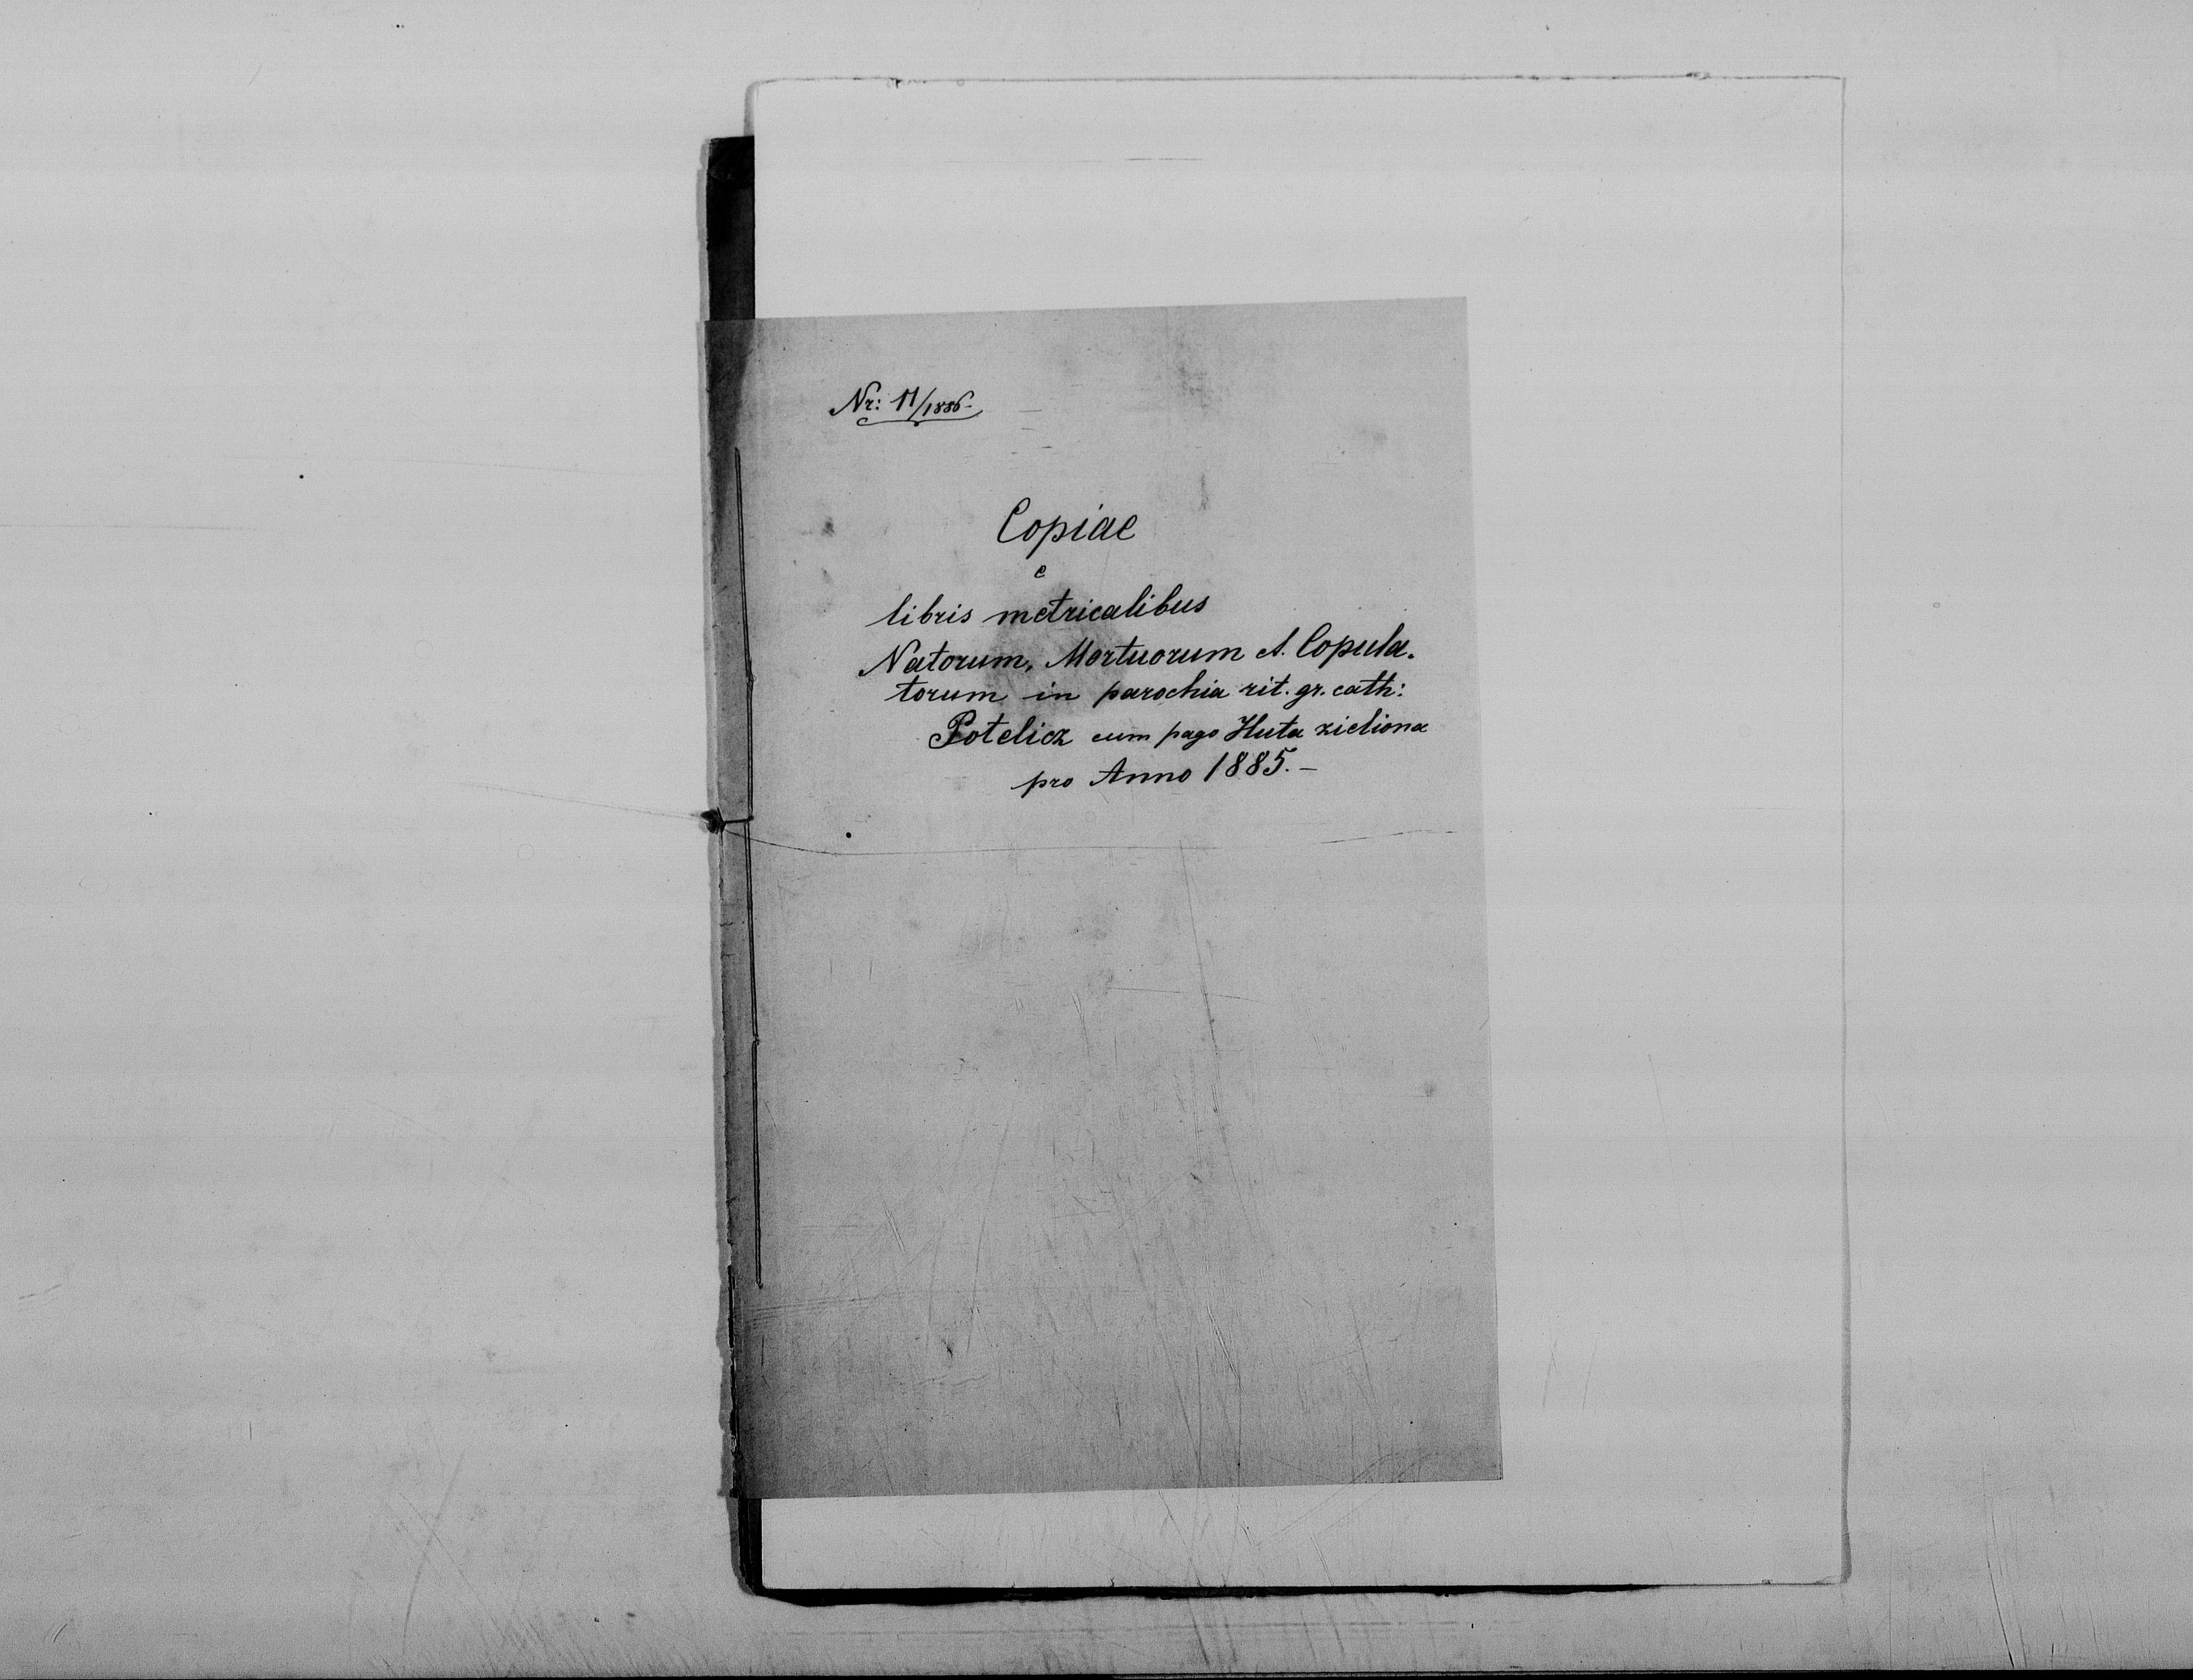 Nr: 11/1886.
Copiae
e
libris metricalibus
Natorum, Mortuorum et Copula-
torum in parochia rit. gr. cath:
Potelicz cum pago Huta zieliona
pro Anno 1885.-